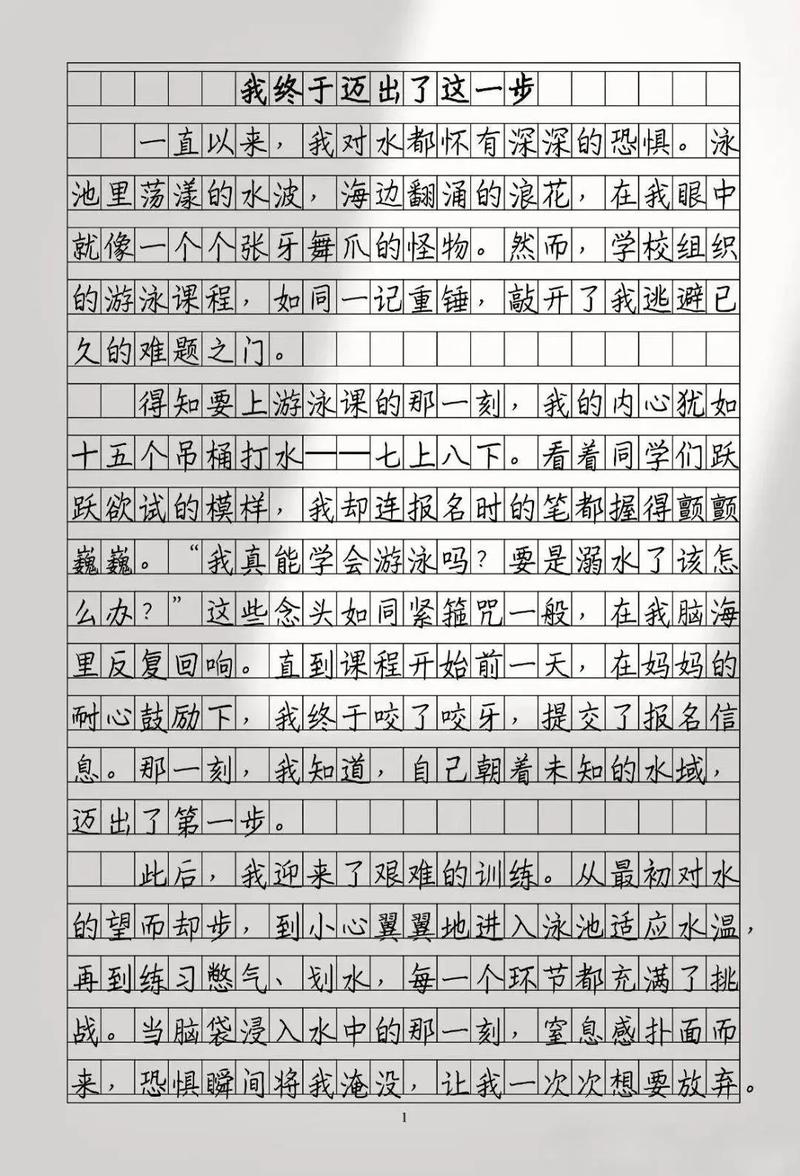 我终于迈出了这一步
一直以来，我对水都怀有深深的恐惧。泳
池里荡漾的水波，海边翻涌的浪花，在我眼中
就像一个个张牙舞爪的怪物。然而，学校组织
的游泳课程，如同一记重锤，敲开了我逃避已
久的难题之门。
得知要上游泳课的那一刻，我的内心犹如
十五个吊桶打水——七上八下。看着同学们跃
跃欲试的模样，我却连报名时的笔都握得颤颤
巍巍。“我真能学会游泳吗？要是溺水了该怎
么办？”这些念头如同紧箍咒一般，在我脑海
里反复回响。直到课程开始前一天，在妈妈的
耐心鼓励下，我终于咬了咬牙，提交了报名信
息。那一刻，我知道，自己朝着未知的水域，
迈出了第一步。
此后，我迎来了艰难的训练。从最初对水
的望而却步，到小心翼翼地进入泳池适应水温，
再到练习憋气、划水，每一个环节都充满了挑
战。当脑袋浸入水中的那一刻，窒息感扑面而
来，恐惧瞬间将我淹没，让我一次次想要放弃。
1